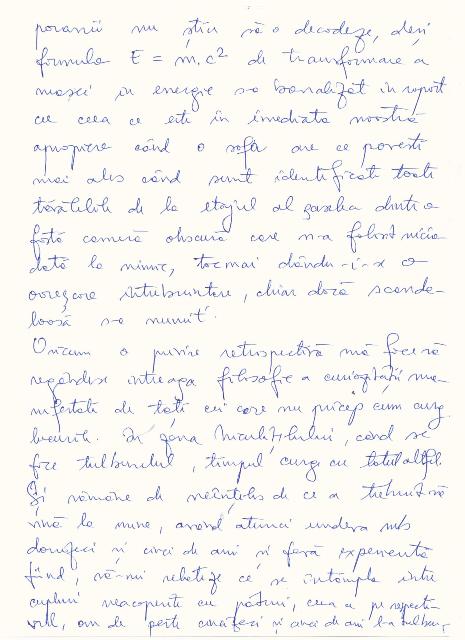 poranii nu știu să o decodeze, deși
formula E = m.c² de transformare a
masei în energie s-a banalizat în raport
cu ceea ce este în imediata noastră
apropiere când o sofa are ce povesti
mai ales când sunt identificate toate
de la etajul al șaselea dintr-o
fostă cameră obscură care n-a folosit nicio
dată la nimic, tocmai dându-i-se o
oarecare întrebuințare, chiar dacă scanda-
loasă s-a numit.
Oricum o privire retrospectivă mă face să
regândesc întreaga filosofie a curiozității ma-
nifestată de toți cei care nu pricep cum curg
lucrurile. În zona , când se
face tulburelul, timpul curge cu totul altfel.
Și rămâne de neînțeles de ce a trebuit să
vină la mine, având atunci undeva sub
douăzeci și cinci de ani și fără experiență
fiind, să-mi relateze ce se întâmpla între
cupluri neacoperite cu pături, ceea ce pe respecti-
vul, om de peste cincizeci și cinci de ani l-a tulburat